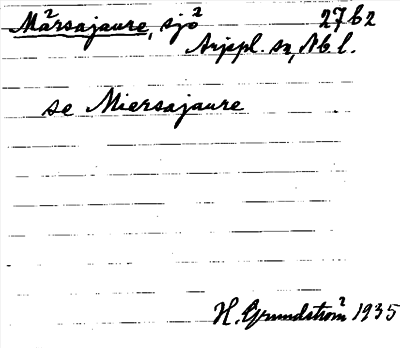 Märsajaure, sjö 27b2
Arjepl. sn, Nb l.
se Miersajaure
H. Grundström 1935